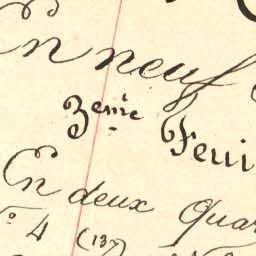 En neuf
3eme Feui
En deux Quar
No 4 (137